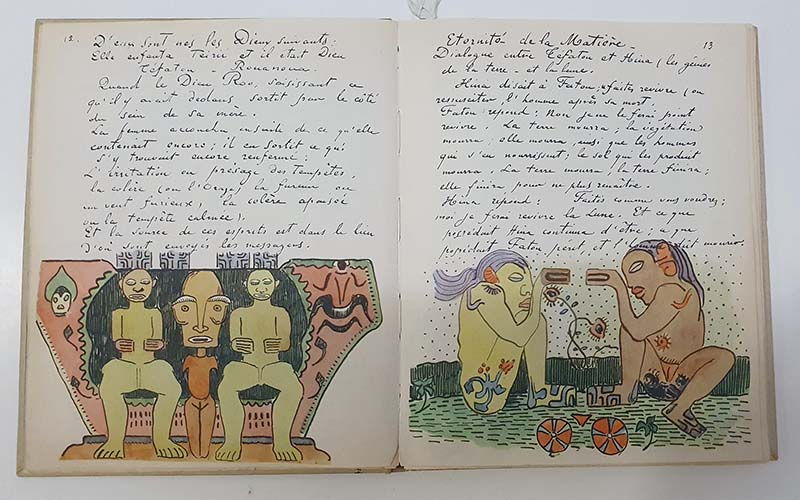 12.
D'eux sont nés les Dieux suivants.
Elle enfanta Téirii et il était Dieu
Téfatou — Rouanoua.
Quand le Dieu Roo, saisissant ce
qu'il y avait dedans, sortit par le côté
du sein de sa mère.
La femme accoucha ensuite de ce qu'elle
contenait encore; il en sortit ce qui
s'y trouvait encore renfermé:
L'irritation ou présage des Tempêtes,
la colère (ou l'orage) la fureur ou
un vent furieux, la colère apaisée
ou la tempête calmée).
Et la source de ces esprits est dans le lieu
D'où sont envoyés les messagers.
13
Eternité de la Matière —
Dialogue entre Téfatou et Hina (les génies
de la terre — et la lune.
Hina disait à Fatou; faites revivre (ou
ressusciter, l'homme après sa mort.
Fatou repond: Non je ne le ferai point
revivre. La terre mourra; la végétation
mourra; elle mourra, ainsi que les hommes
qui s'en nourrissent; le sol qui les produit
mourra. La terre mourra, la terre finira;
elle finira pour ne plus renaître.
Hina répond: Faites comme vous voudrez;
moi je ferai revivre la Lune. Et ce que
possédait Hina continua d'être; ce que
possédait Fatou périt, et l'homme dut mourir.